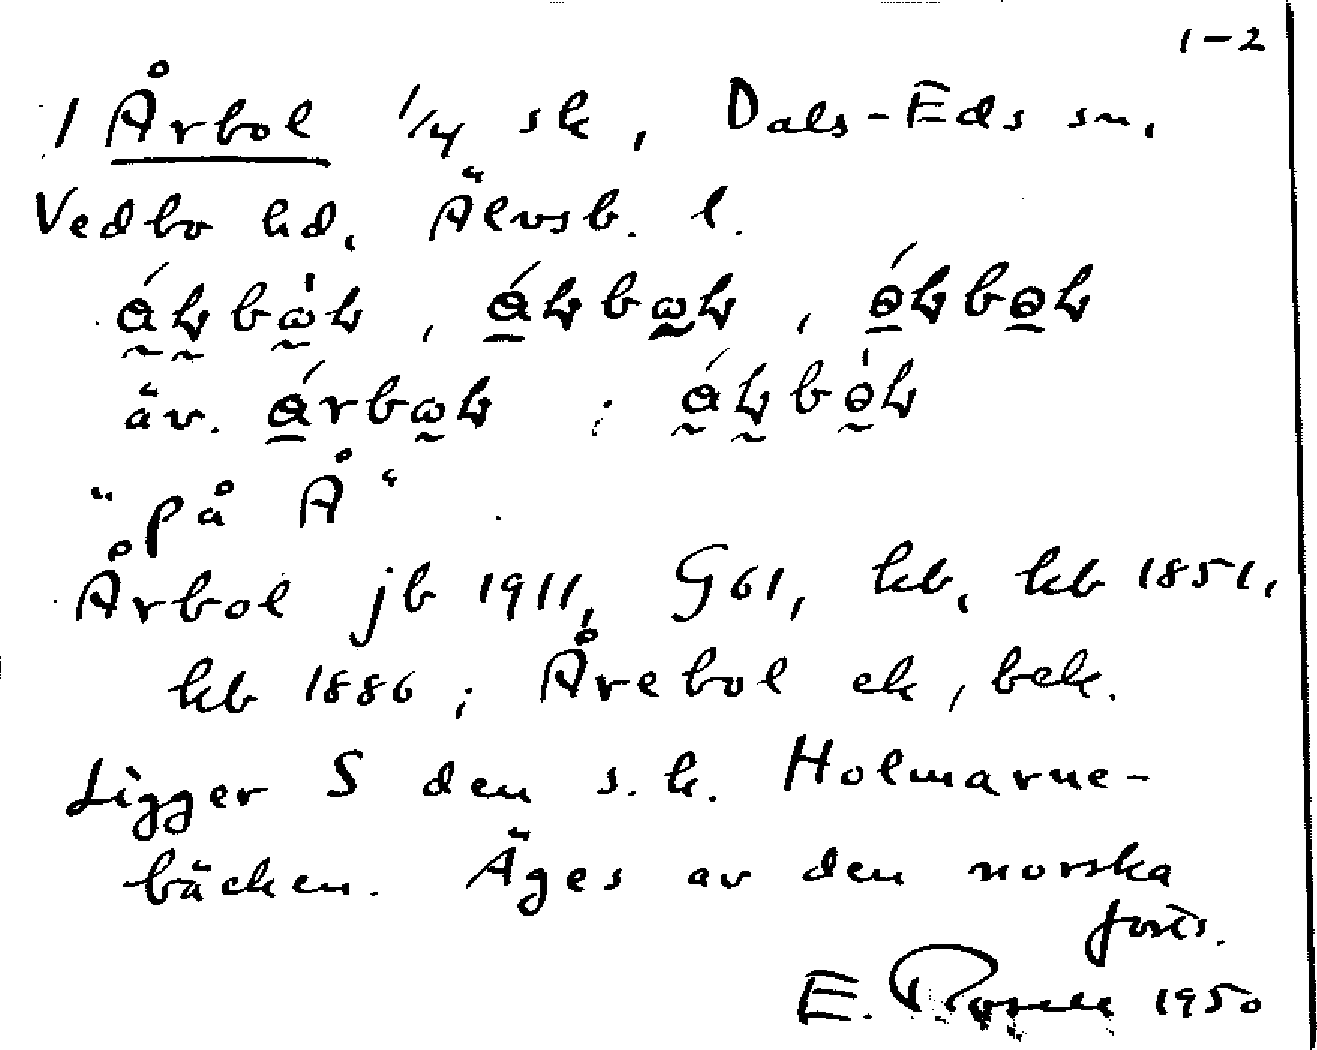 1-2
1 Årbol 1/4 sk, Dals-Eds sn,
Vedbo hd, Älvsb. l.
äv.
"på Å"
Årbol jb 1911, G61, kb, kb 1851,
kb 1886; Årebol ek, bek.
Ligger S den s.k. Holmarne-
bäcken. Äges av den norska
forts.
E. Rosell 1950